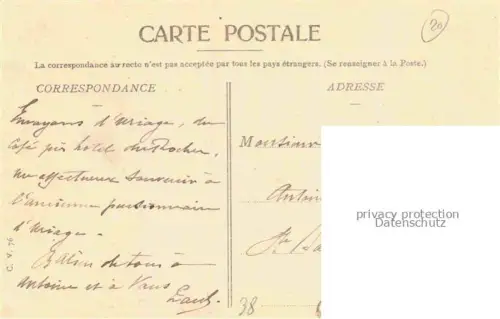 20
CARTE POSTALE
La correspondance au recto n'est pas acceptée par tous les pays étrangers. (Se renseigner à la Poste.)
CORRESPONDANCE
ADRESSE
Envoyons d'Uriage, du
Café près hotel du Rocher,
un affectueux souvenir à
l'ancienne pensionnaire
d'Uriage.
de tous à
Antoine et à Vous
C. V. 76
Monsieur
38
privacy protection
Datenschutz